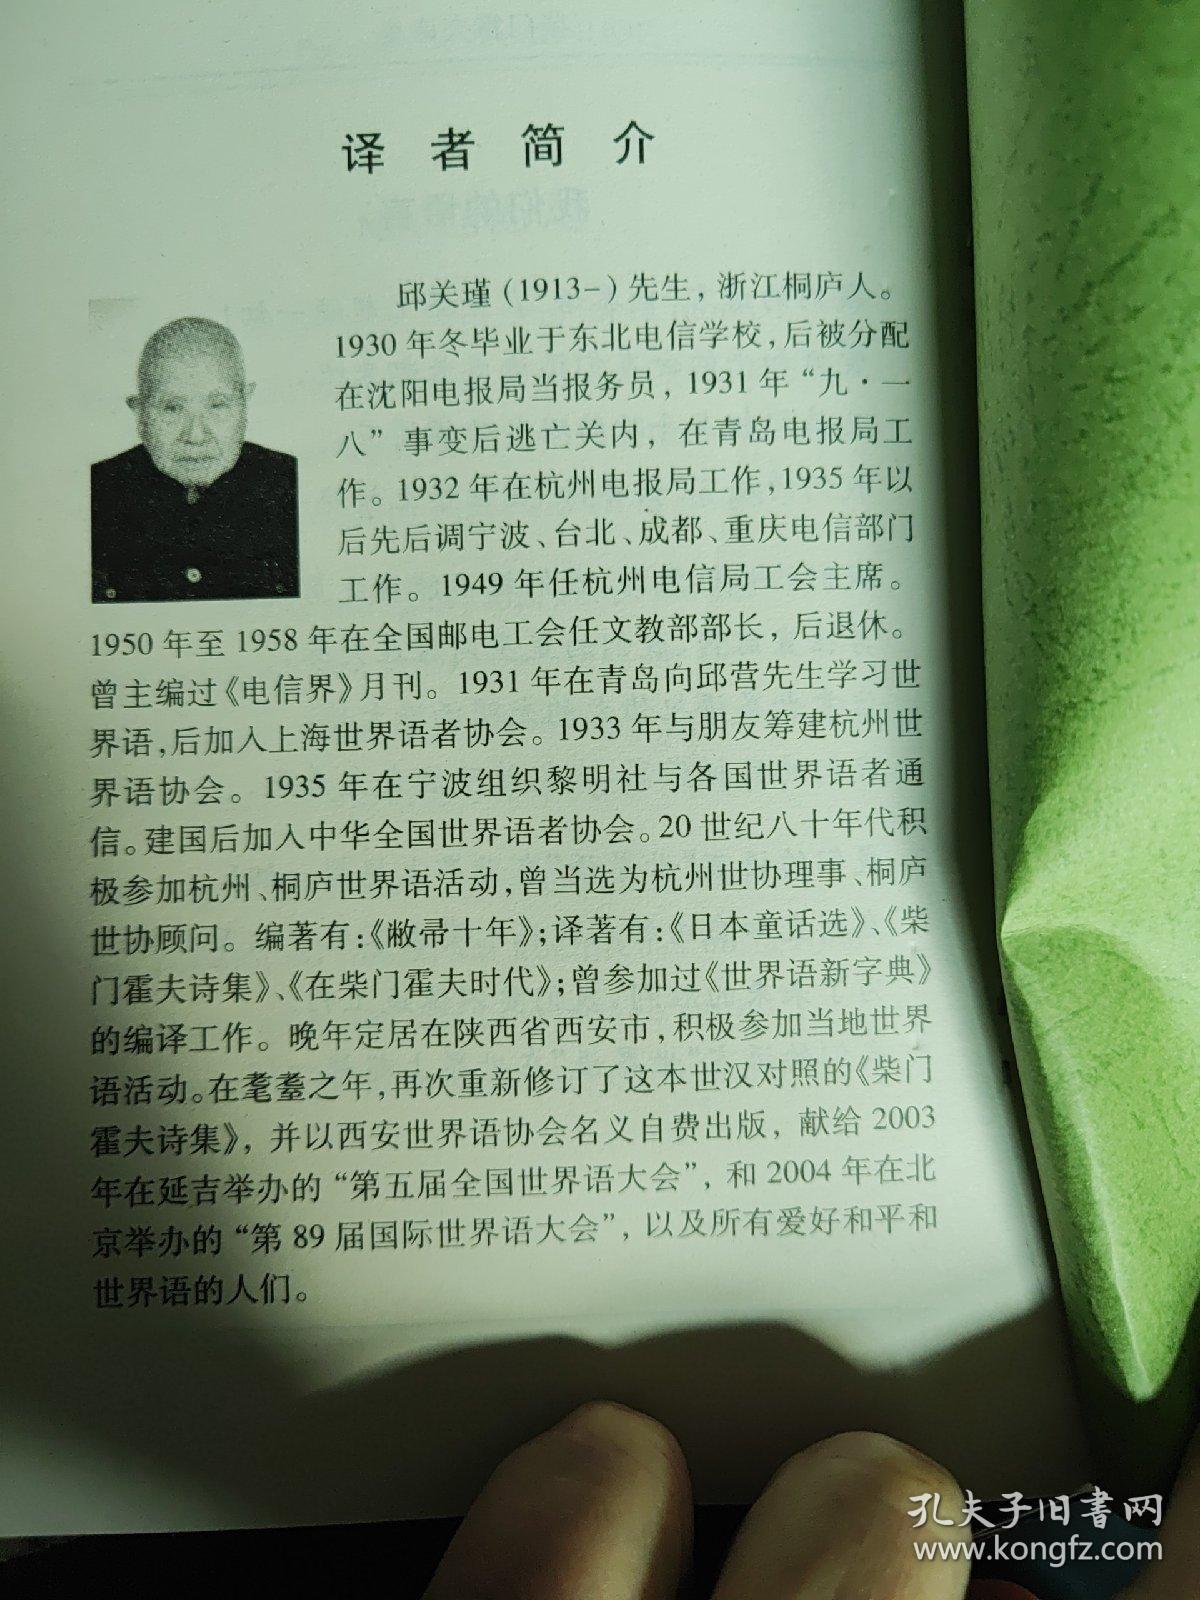 译者简介
邱关瑾（1913－）先生，浙江桐庐人。
1930年冬毕业于东北电信学校，后被分配
在沈阳电报局当报务员，1931年“九·一
八”事变后逃亡关内，在青岛电报局工
作。1932年在杭州电报局工作，1935年以
后先后调宁波、台北、成都、重庆电信部门
工作。1949年任杭州电信局工会主席。
1950年至1958年在全国邮电工会任文教部部长，后退休。
曾主编过《电信界》月刊。1931年在青岛向邱营先生学习世
界语，后加入上海世界语者协会。1933年与朋友筹建杭州世
界语协会。1935年在宁波组织黎明社与各国世界语者通
信。建国后加入中华全国世界语者协会。20世纪八十年代积
极参加杭州、桐庐世界语活动，曾当选为杭州世协理事、桐庐
世协顾问。编著有：《敝帚十年》；译著有：《日本童话选》、《柴
门霍夫诗集》、《在柴门霍夫时代》；曾参加过《世界语新字典》
的编译工作。晚年定居在陕西省西安市，积极参加当地世界
语活动。在耄耋之年，再次重新修订了这本世汉对照的《柴门
霍夫诗集》，并以西安世界语协会名义自费出版，献给2003
年在延吉举办的“第五届全国世界语大会”，和2004年在北
京举办的“第89届国际世界语大会”，以及所有爱好和平和
世界语的人们。
孔夫子旧书网
www.kongfz.com